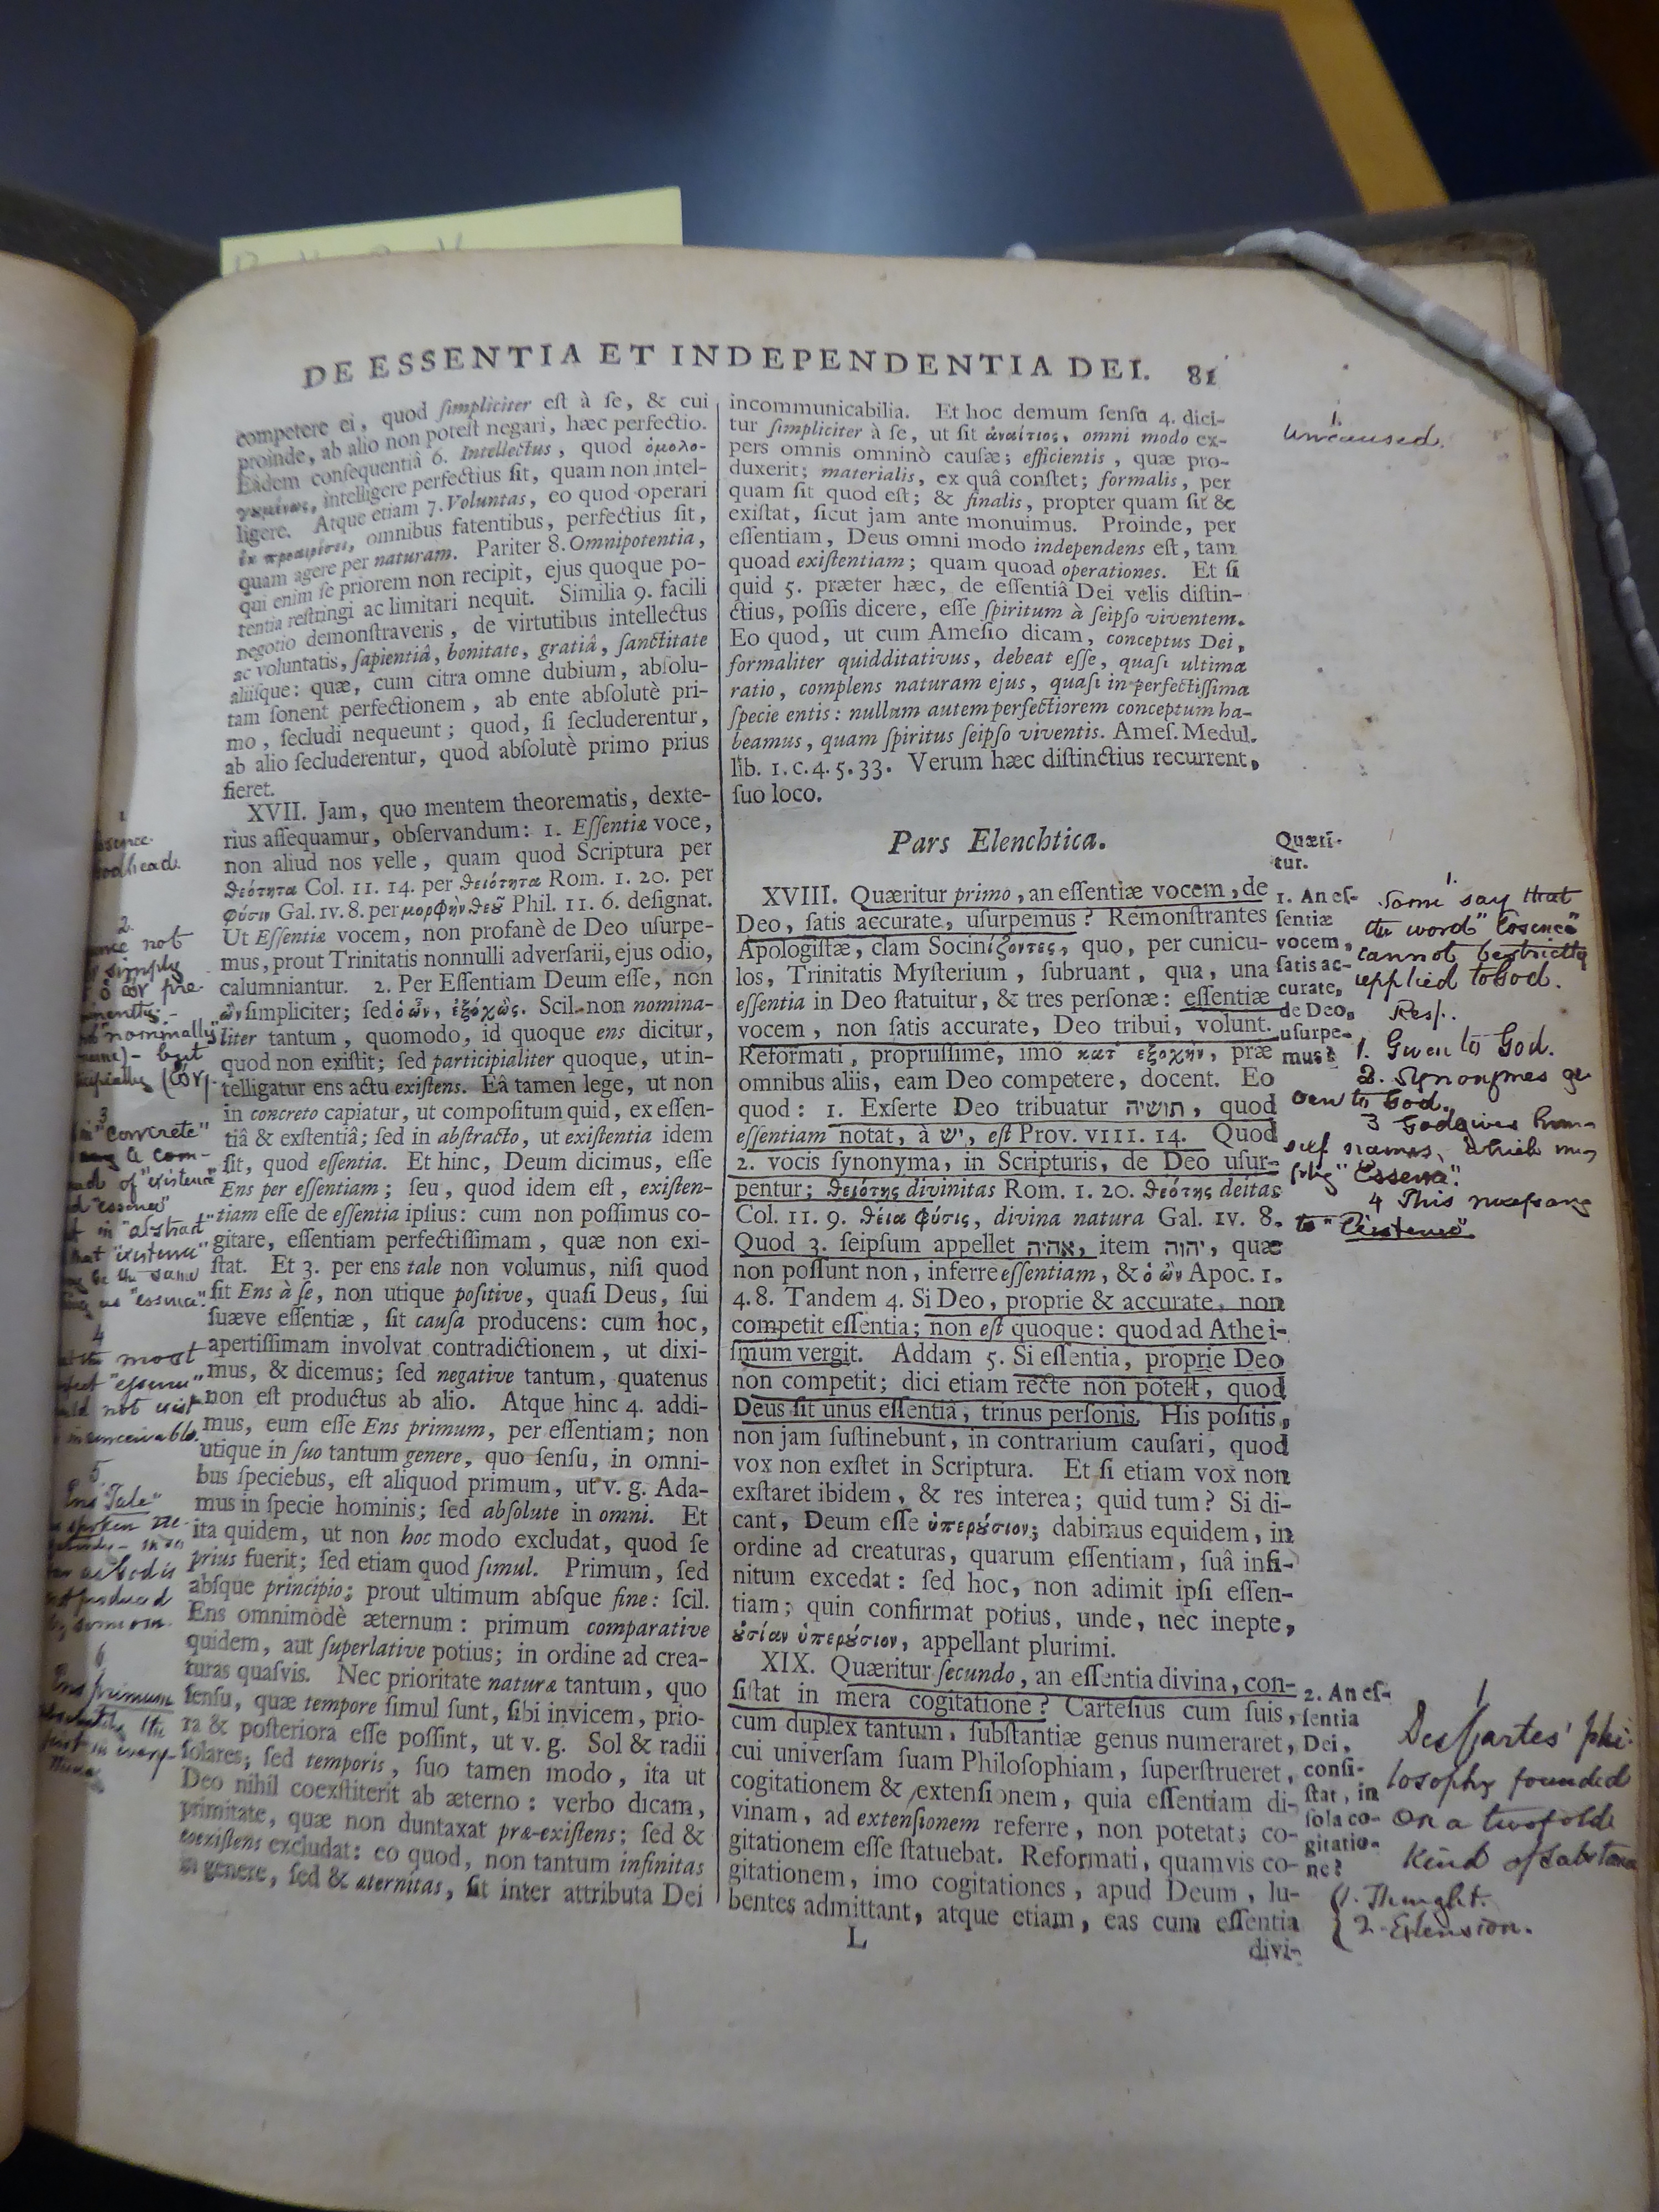 DE ESSENTIA ET INDEPENDENTIA DEI. 81
competere ei, quod ſimpliciter eſt à ſe, & cui
proinde, ab alio non poteſt negari, hæc perfectio.
Eâdem conſequentiâ 6. Intellectus, quod ὁμολο-
γουμένως, intelligere perfectius ſit, quam non intel-
ligere. Atque etiam 7. Voluntas, eo quod operari
ἐκ προαιρέσει, omnibus fatentibus, perfectius ſit,
quam agere per naturam. Pariter 8. Omnipotentia,
qui enim ſe priorem non recipit, ejus quoque po-
tentia reſtringi ac limitari nequit. Similia 9. facili
negotio demonſtraveris, de virtutibus intellectus
ac voluntatis, ſapientiâ, bonitate, gratiâ, ſanctitate
aliiſque: quæ, cum citra omne dubium, abſolu-
tam ſonent perfectionem, ab ente abſolutè pri-
mo, ſecludi nequeunt; quod, ſi ſecluderentur,
ab alio ſecluderentur, quod abſolutè primo prius
fieret.
XVII. Jam, quo mentem theorematis, dexte-
rius aſſequamur, obſervandum: 1. Eſſentiæ voce,
non aliud nos velle, quam quod Scriptura per
θεότητα Col. II. 14. per θειότητα Rom. I. 20. per
φύσιν Gal. IV. 8. per μορφὴν Θεοῦ Phil. II. 6. deſignat.
Ut Eſſentiæ vocem, non profanè de Deo uſurpe-
mus, prout Trinitatis nonnulli adverſarii, ejus odio,
calumniantur. 2. Per Eſſentiam Deum eſſe, non
ὢν ſimpliciter; ſed ὁ ὢν, ἐξόχως. Scil. non nomina-
liter tantum, quomodo, id quoque ens dicitur,
quod non exiſtit; ſed participialiter quoque, ut in-
telligatur ens actu exiſtens. Eâ tamen lege, ut non
in concreto capiatur, ut compoſitum quid, ex eſſen-
tiâ & exſtentiâ; ſed in abſtracto, ut exiſtentia idem
ſit, quod eſſentia. Et hinc, Deum dicimus, eſſe
Ens per eſſentiam; ſeu, quod idem eſt, exiſten-
tiam eſſe de eſſentia ipſius: cum non poſſimus co-
gitare, eſſentiam perfectiſſimam, quæ non exi-
ſtat. Et 3. per ens tale non volumus, niſi quod
ſit Ens à ſe, non utique poſitive, quaſi Deus, ſui
ſuæve eſſentiæ, ſit cauſa producens: cum hoc,
apertiſſimam involvat contradictionem, ut dixi-
mus, & dicemus; ſed negative tantum, quatenus
non eſt productus ab alio. Atque hinc 4. addi-
mus, eum eſſe Ens primum, per eſſentiam; non
utique in ſuo tantum genere, quo ſenſu, in omni-
bus ſpeciebus, eſt aliquod primum, ut v. g. Ada-
mus in ſpecie hominis; ſed abſolute in omni. Et
ita quidem, ut non hoc modo excludat, quod ſe
prius fuerit; ſed etiam quod ſimul. Primum, ſed
abſque principio; prout ultimum abſque fine: ſcil.
Ens omnimòdè æternum: primum comparative
quidem, aut ſuperlative potius; in ordine ad crea-
turas quaſvis. Nec prioritate naturæ tantum, quo
ſenſu, quæ tempore ſimul ſunt, ſibi invicem, prio-
ra & poſteriora eſſe poſſint, ut v. g. Sol & radii
ſolares; ſed temporis, ſuo tamen modo, ita ut
Deo nihil coexſtiterit ab æterno: verbo dicam,
primitate, quæ non duntaxat præ-exiſtens; ſed &
coexiſtens excludat: eo quod, non tantum infinitas
in genere, ſed & æternitas, ſit inter attributa Dei
incommunicabilia. Et hoc demum ſenſu 4. dici-
tur ſimpliciter à ſe, ut ſit ἀναίτιος, omni modo ex-
pers omnis omninò cauſæ; efficientis, quæ pro-
duxerit; materialis, ex quâ conſtet; formalis, per
quam ſit quod eſt; & finalis, propter quam ſit &
exiſtat, ſicut jam ante monuimus. Proinde, per
eſſentiam, Deus omni modo independens eſt, tam
quoad exiſtentiam; quam quoad operationes. Et ſi
quid 5. præter hæc, de eſſentiâ Dei velis diſtin-
ctius, poſſis dicere, eſſe ſpiritum à ſeipſo viventem.
Eo quod, ut cum Ameſio dicam, conceptus Dei,
formaliter quidditativus, debeat eſſe, quaſi ultima
ratio, complens naturam ejus, quaſi in perfectiſſima
ſpecie entis: nullum autem perfectiorem conceptum ha-
beamus, quam ſpiritus ſeipſo viventis. Ameſ. Medul.
lib. 1. c. 4. 5. 33. Verum hæc diſtinctius recurrent,
ſuo loco.
Pars Elenchtica.
XVIII. Quæritur primo, an eſſentiæ vocem, de
Deo, ſatis accurate, uſurpemus? Remonſtrantes
Apologiſtæ, clam Sociniζοντες, quo, per cunicu-
los, Trinitatis Myſterium, ſubruant, qua, una
eſſentia in Deo ſtatuitur, & tres perſonæ: eſſentiæ
vocem, non ſatis accurate, Deo tribui, volunt.
Reformati, propriiſſime, imo κατ' ἐξοχὴν, præ
omnibus aliis, eam Deo competere, docent. Eo
quod: 1. Exſerte Deo tribuatur תושיה, quod
eſſentiam notat, à יש, eſt Prov. VIII. 14. Quod
2. vocis ſynonyma, in Scripturis, de Deo uſur-
pentur; θειότης divinitas Rom. I. 20. θεότης deitas
Col. II. 9. θεία φύσις, divina natura Gal. IV. 8.
Quod 3. ſeipſum appellet אהיה, item יהוה, quæ
non poſſunt non, inferre eſſentiam, & ὁ ὢν Apoc. I.
4. 8. Tandem 4. Si Deo, proprie & accurate, non
competit eſſentia; non eſt quoque: quod ad Athei-
ſmum vergit. Addam 5. Si eſſentia, proprie Deo
non competit; dici etiam recte non poteſt, quod
Deus ſit unus eſſentiâ, trinus perſonis. His poſitis,
non jam ſuſtinebunt, in contrarium cauſari, quod
vox non exſtet in Scriptura. Et ſi etiam vox non
exſtaret ibidem, & res interea; quid tum? Si di-
cant, Deum eſſe ὑπερούσιον; dabimus equidem, in
ordine ad creaturas, quarum eſſentiam, ſuâ infi-
nitum excedat: ſed hoc, non adimit ipſi eſſen-
tiam; quin confirmat potius, unde, nec inepte,
οὐσίαν ὑπερούσιον, appellant plurimi.
XIX. Quæritur ſecundo, an eſſentia divina, con-
ſiſtat in mera cogitatione? Carteſius cum ſuis,
cum duplex tantum, ſubſtantiæ genus numeraret,
cui univerſam ſuam Philoſophiam, ſuperſtrueret,
cogitationem & extenſionem, quia eſſentiam di-
vinam, ad extenſionem referre, non potetat; co-
gitationem eſſe ſtatuebat. Reformati, quamvis co-
gitationem, imo cogitationes, apud Deum, lu-
bentes admittant, atque etiam, eas cum eſſentia
L
divi-
Quæri-
tur.
1. An eſ-
ſentiæ
vocem,
ſatis ac-
curate,
de Deo,
uſurpe-
mus?
2. An eſ-
ſentia
Dei,
conſi-
ſtat, in
ſola co-
gitatio-
ne?
1.
Uncaused.
1.
Some say that
the word "Essence"
cannot be strictly
applied to God.
Resp.
1. Given to God.
2. Synonymes gi
ven to God.
3 God gives him-
self names, which
"Essence".
4 This
to "Existence".
1
DesCartes' phi-
losophy founded
on a twofolde
Kind of Substance
1. Thought.
2. Extension.
2.
not
simply
ὁ ὢν pre-
"nominally"
but
3
in "concrete"
com-
of "existence"
"essence"
in "abstract"
that "existence"
be the same
as "essence".
4
most
"essence"
not exist
inconceivable.
5
Ens "Tale"
as God is
not produced
6
Ens primum